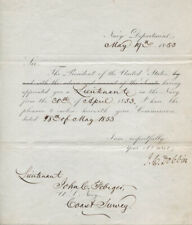 Navy Department,
May 19th 1853
Sir:
The President of the United States by
and with the advice and consent of the Senate having
appointed you a Lieutenant in the Navy
from the 30th of April 1853, I have
the pleasure to enclose herewith your Commission
dated 18th of May 1853
I am respectfully
Your Ob. Servt.
J. C. Dobbin
Lieutenant
John C. Febiger,
U.S. Navy
Coast Survey